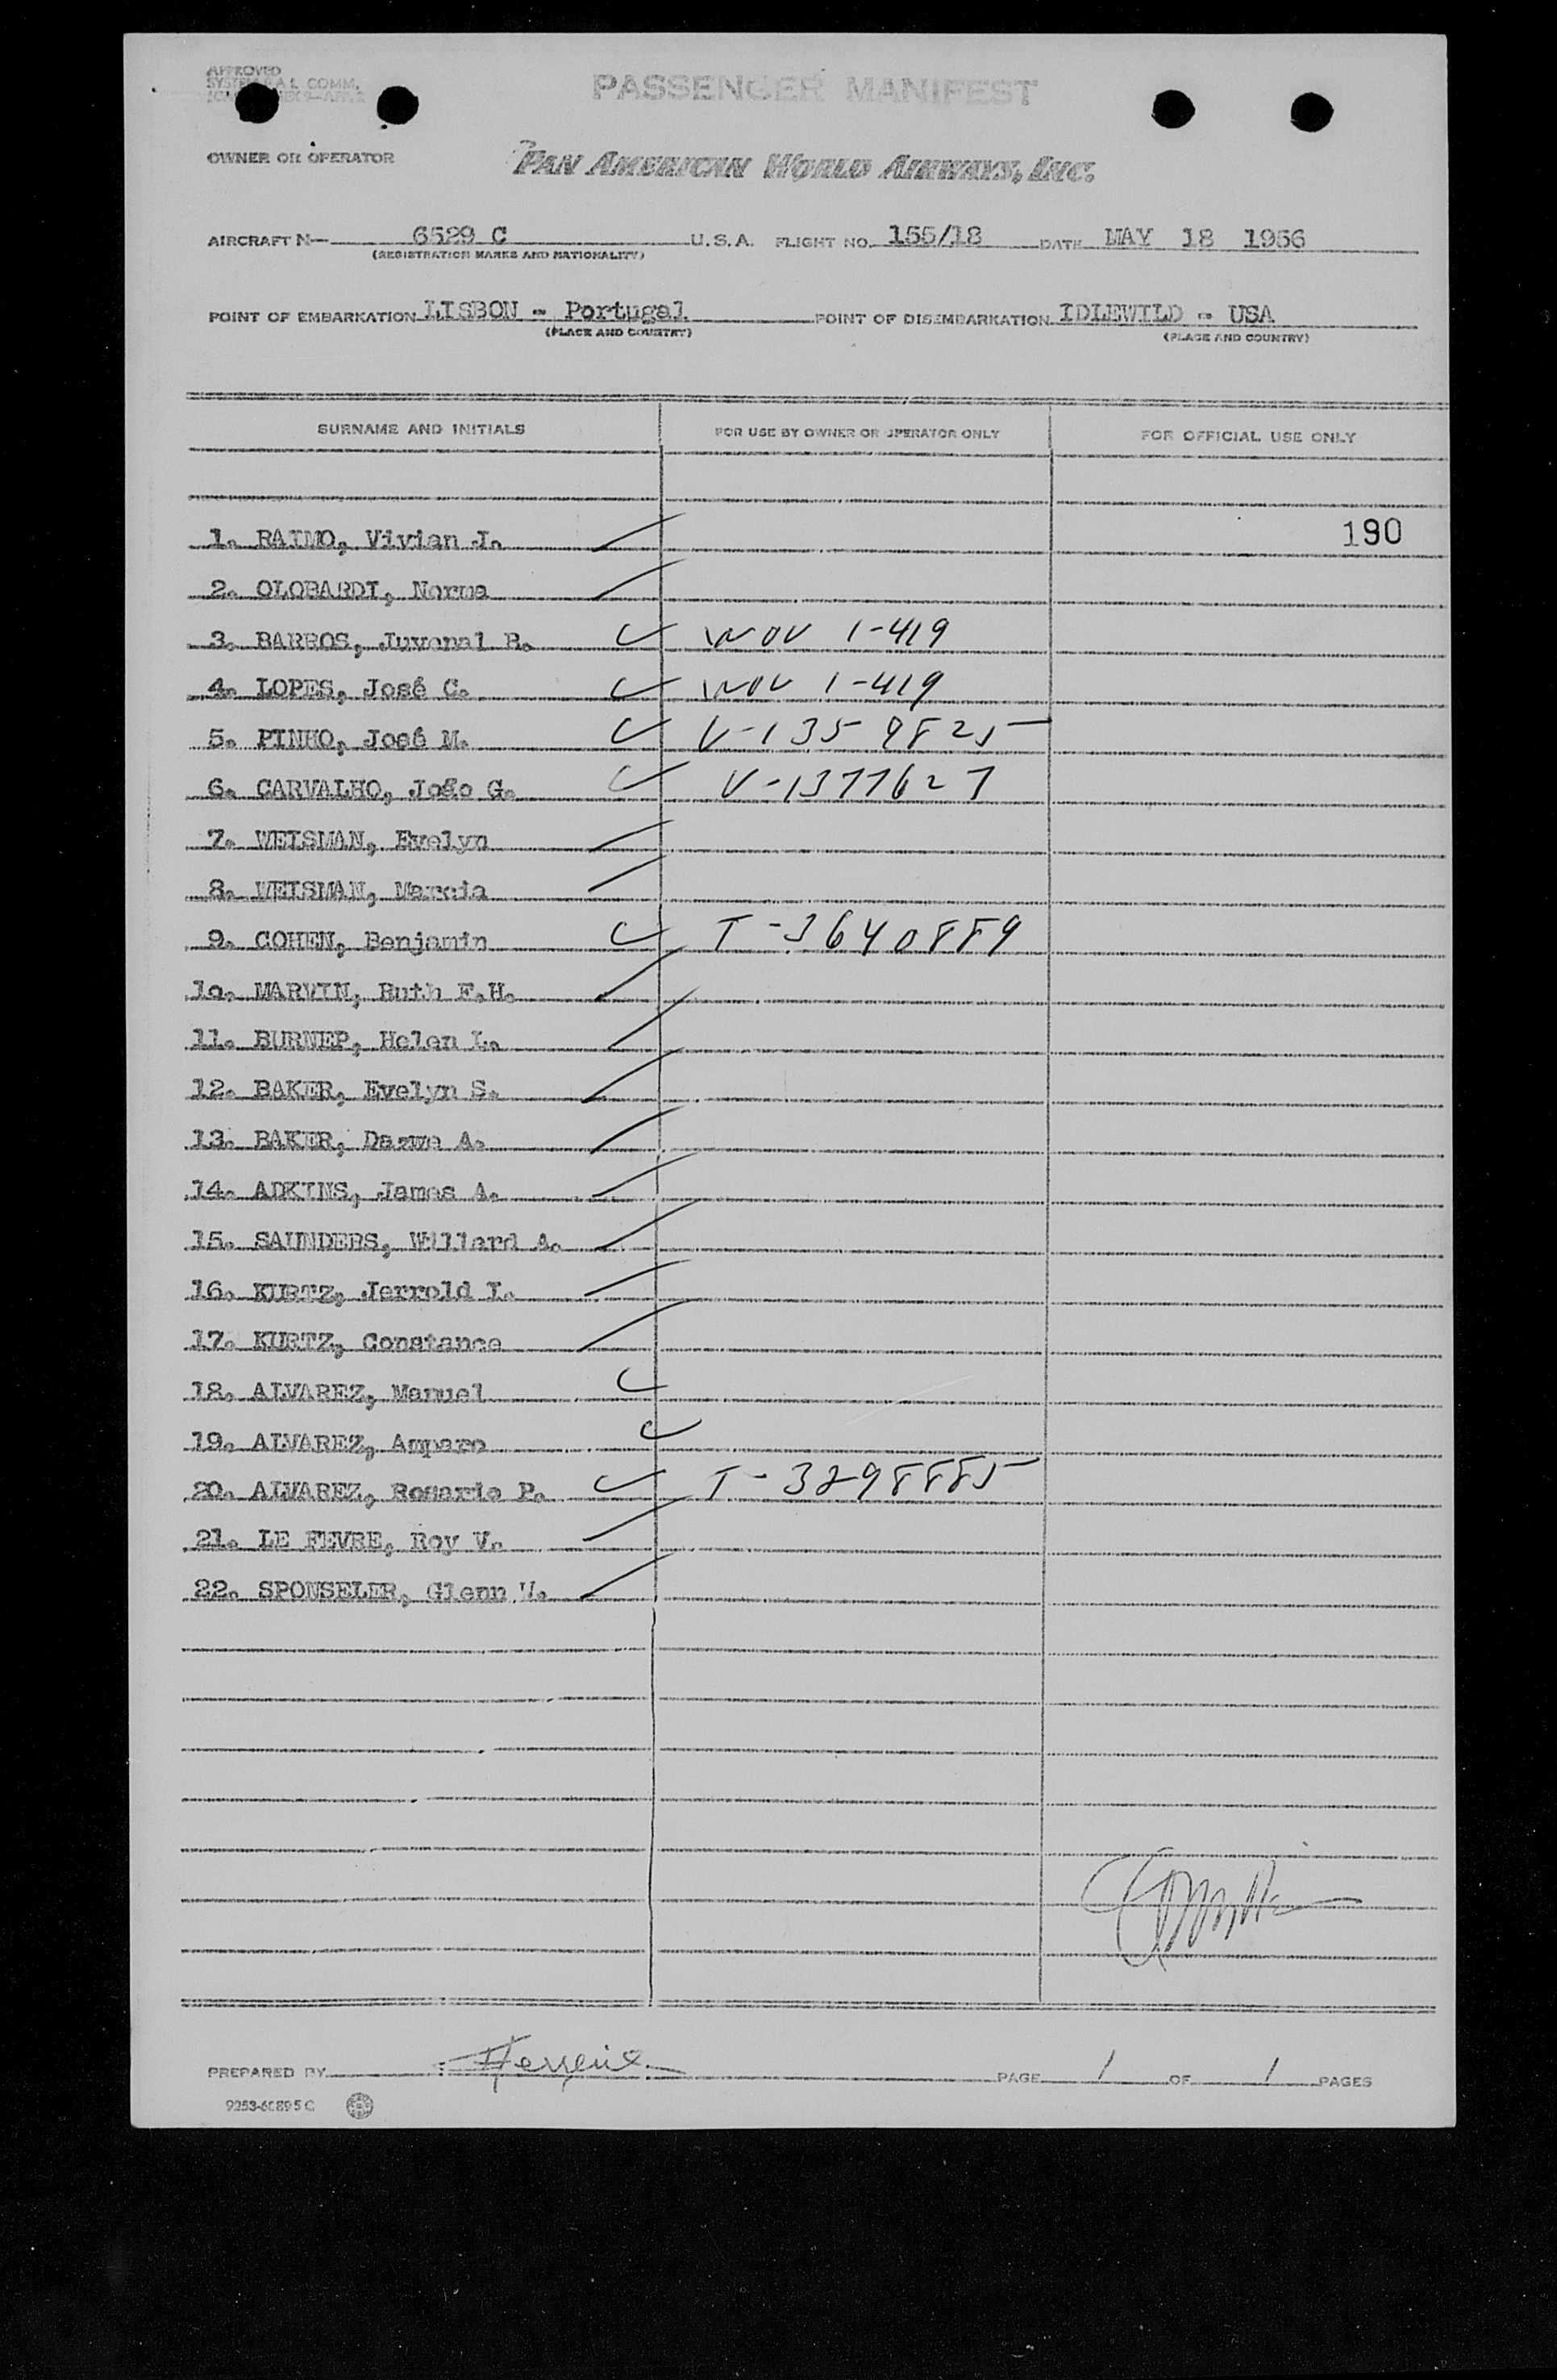 APPROVED
SYSTEM COMM.
PASSENGER MANIFEST
OWNER OR OPERATOR PAN AMERICAN WORLD AIRWAYS, INC.
AIRCRAFT N- 6529 C U.S.A. FLIGHT NO. 155/18 DATE MAY 18 1956
(REGISTRATION MARKS AND NATIONALITY)
POINT OF EMBARKATION LISBON - Portugal POINT OF DISEMBARKATION IDLEWILD - USA
(PLACE AND COUNTRY) (PLACE AND COUNTRY)
SURNAME AND INITIALS FOR USE BY OWNER OR OPERATOR ONLY FOR OFFICIAL USE ONLY
1. RAIMO, Vivian J. 190
2. OLOBARDI, Norma
3. BARROS, Juvenal R. NOV 1-419
4. LOPES, José C. NOV 1-419
5. PINHO, José M. V-1359825
6. CARVALHO, João G. V-1377627
7. WEISMAN, Evelyn
8. WEISMAN, Marcia
9. COHEN, Benjamin T-3640889
10. MARVIN, Ruth F.H.
11. BURNEP, Helen L.
12. BAKER, Evelyn S.
13. BAKER, A.
14. ADKINS, James A.
15. SAUNDERS, Willard A.
16. KURTZ, Jerrold I.
17. KURTZ, Constance
18. ALVAREZ, Manuel
19. ALVAREZ, Amparo
20. ALVAREZ, Rosario P. T-3298885
21. LE FEVRE, Roy V.
22. SPONSELER, Glenn W.
PREPARED BY PAGE 1 OF 1 PAGES
9253-60895C